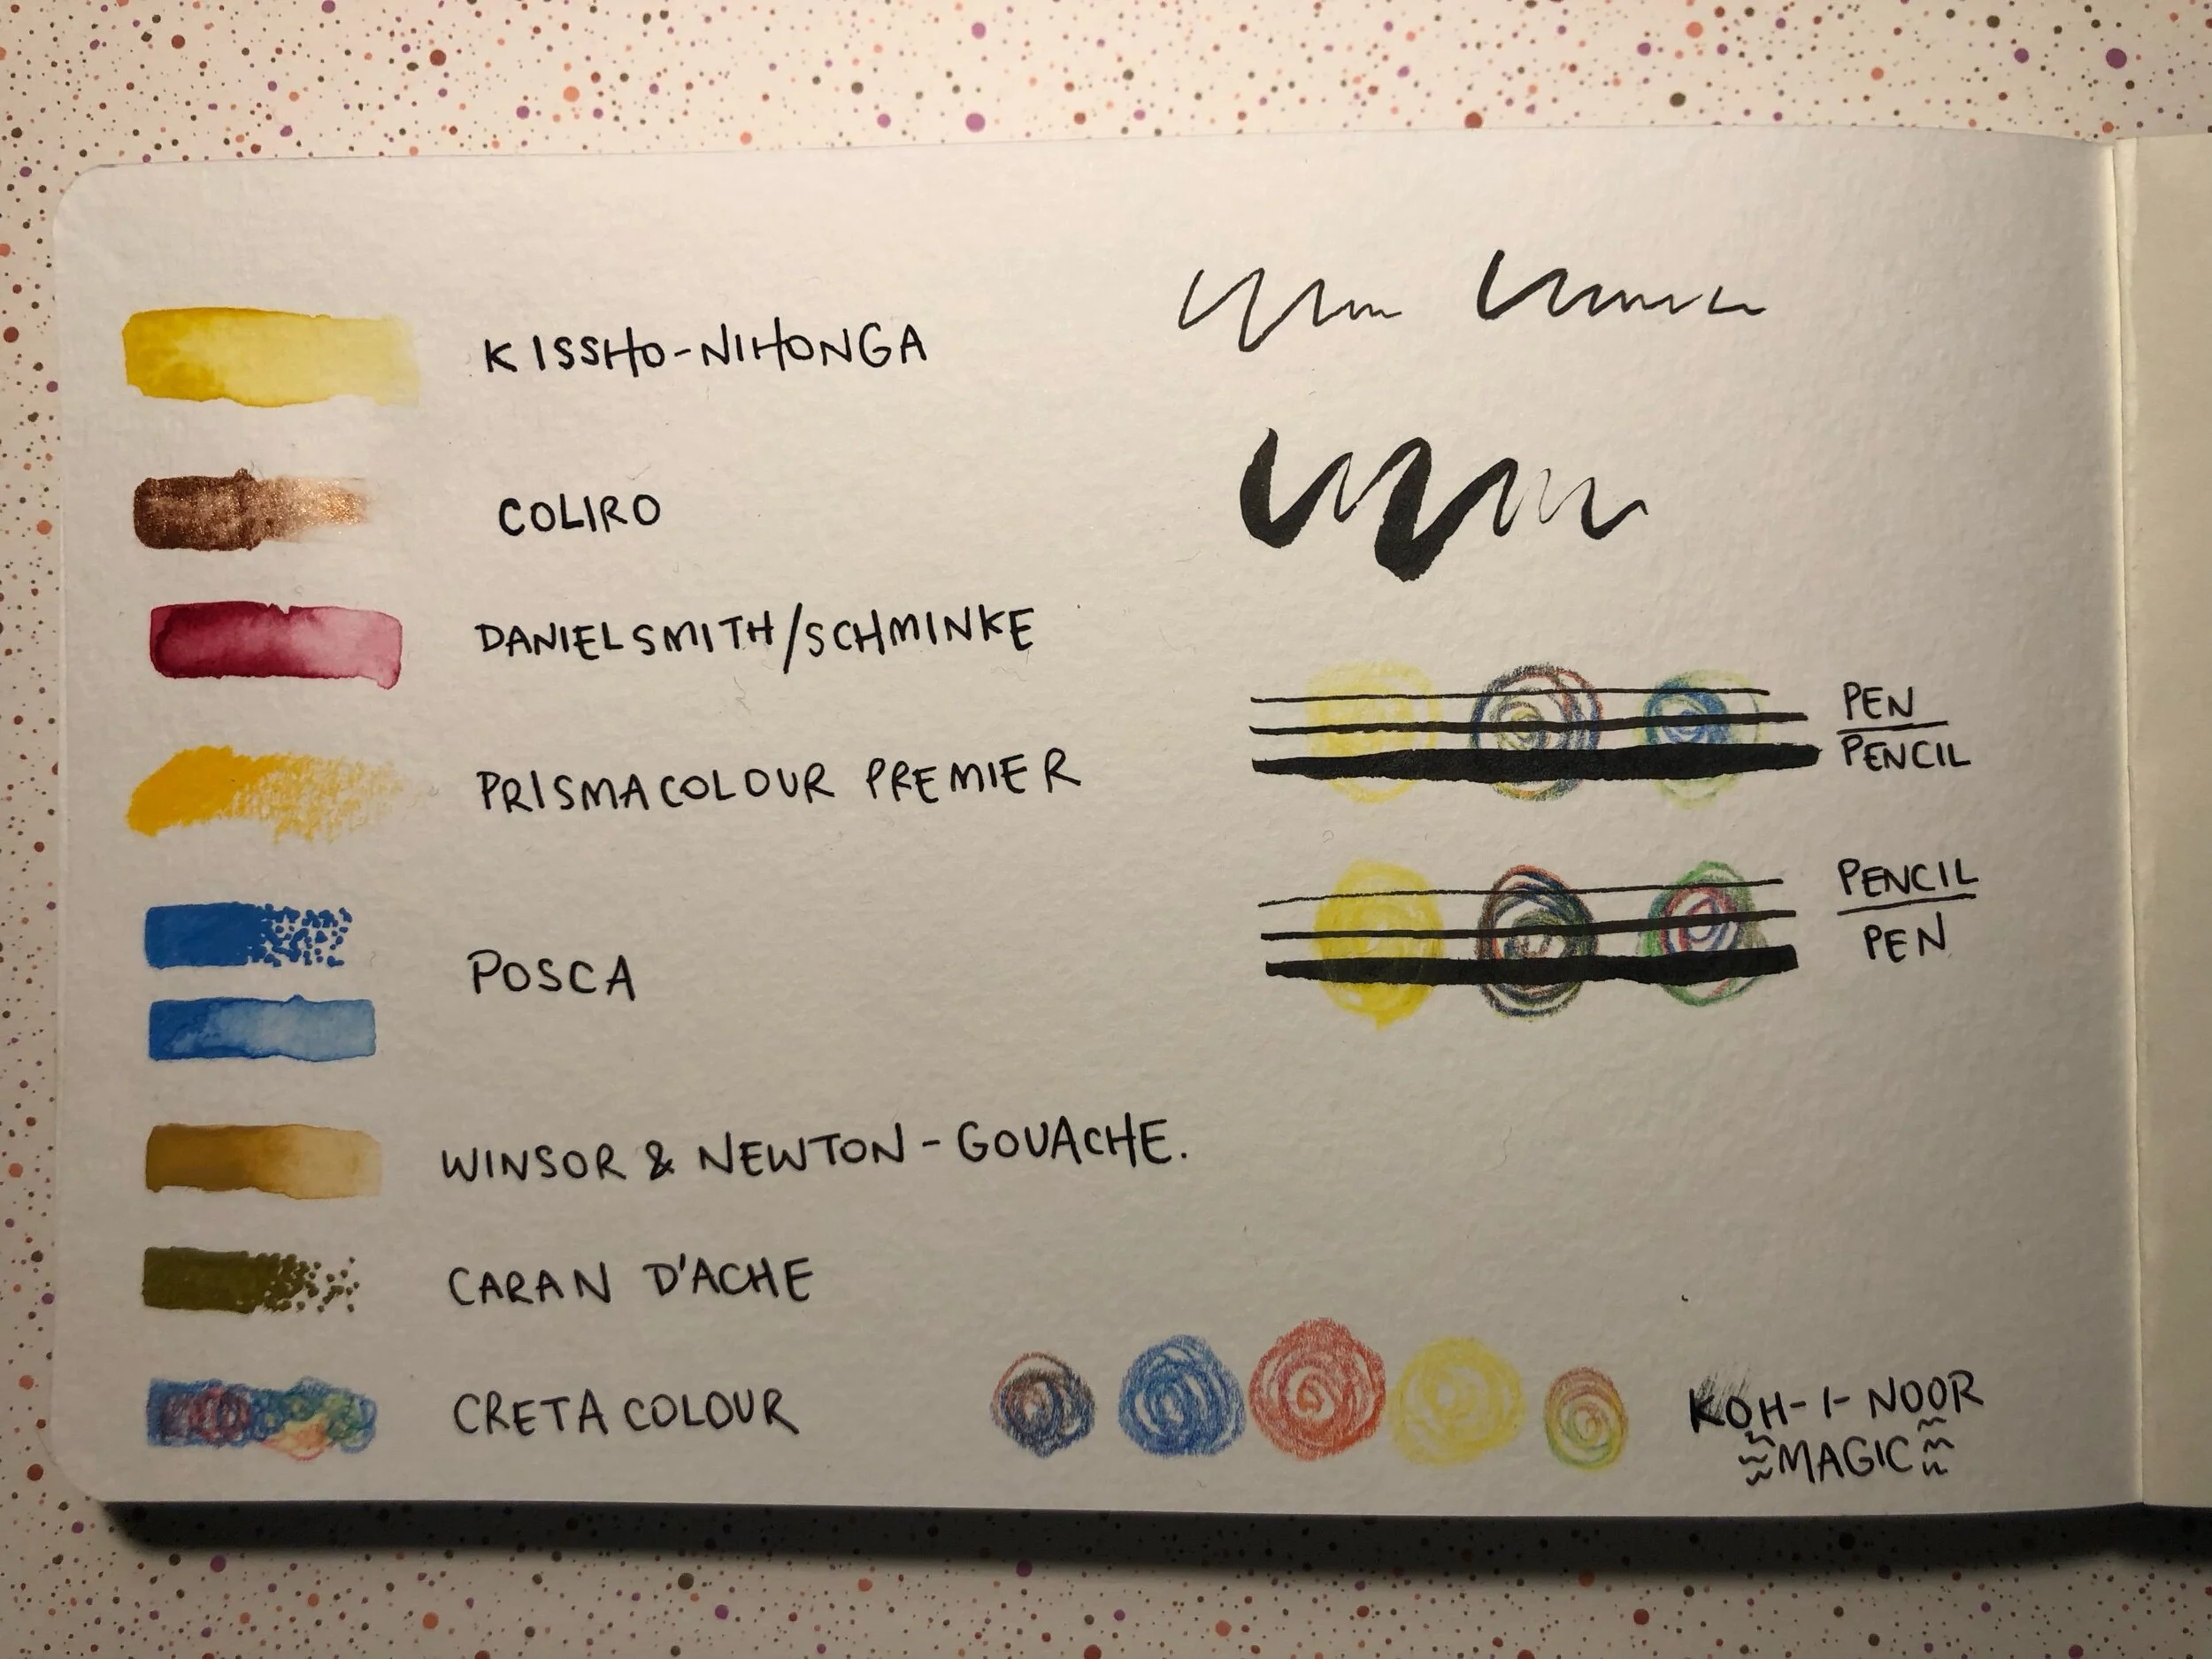 KISSHO-NIHONGA
COLIRO
DANIEL SMITH/SCHMINKE
PRISMACOLOUR PREMIER
POSCA
WINSOR & NEWTON - GOUACHE.
CARAN D'ACHE
CRETACOLOUR
PEN
PENCIL
PENCIL
PEN
KOH-I-NOOR
MAGIC